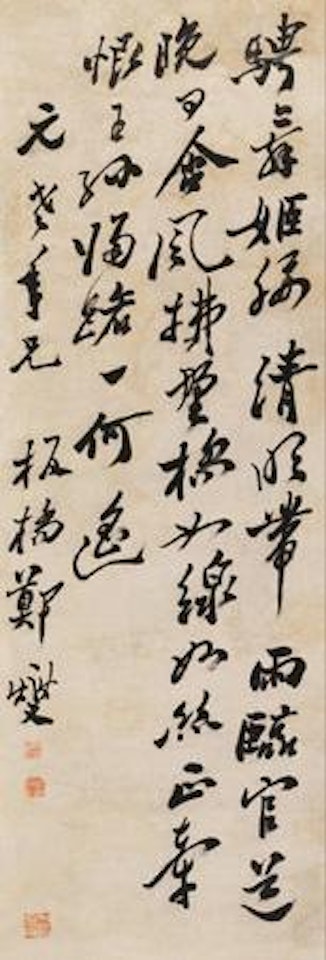 騁〻舞姬腰清明帶雨臨官道
晚日含風拂野橋如線如絲正牽
恨王孫歸路一何遙
元年兄 板橋鄭燮